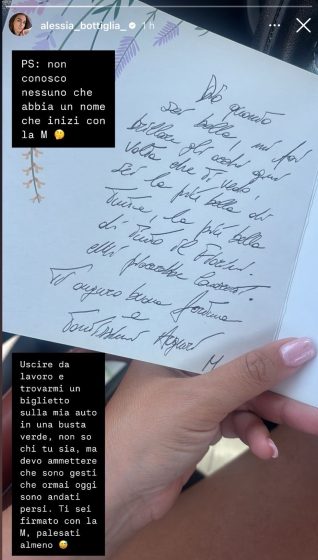 alessia_bottiglia_ 1 h
PS: non
conosco
nessuno che
abbia un nome
che inizi con
la M 🤔
Dio quanto
sei bella, mi fai
brillare gli occhi ogni
volta che ti vedo,
sei la più bella di
Torino, la più bella
di tutto
Mi piacerebbe
Ti auguro buona fortuna
e
Tantissimi Auguri
M
Uscire da
lavoro e
trovarmi un
biglietto
sulla mia auto
in una busta
verde, non so
chi tu sia, ma
devo ammettere
che sono gesti
che ormai oggi
sono andati
persi. Ti sei
firmato con la
M, palesati
almeno 😅